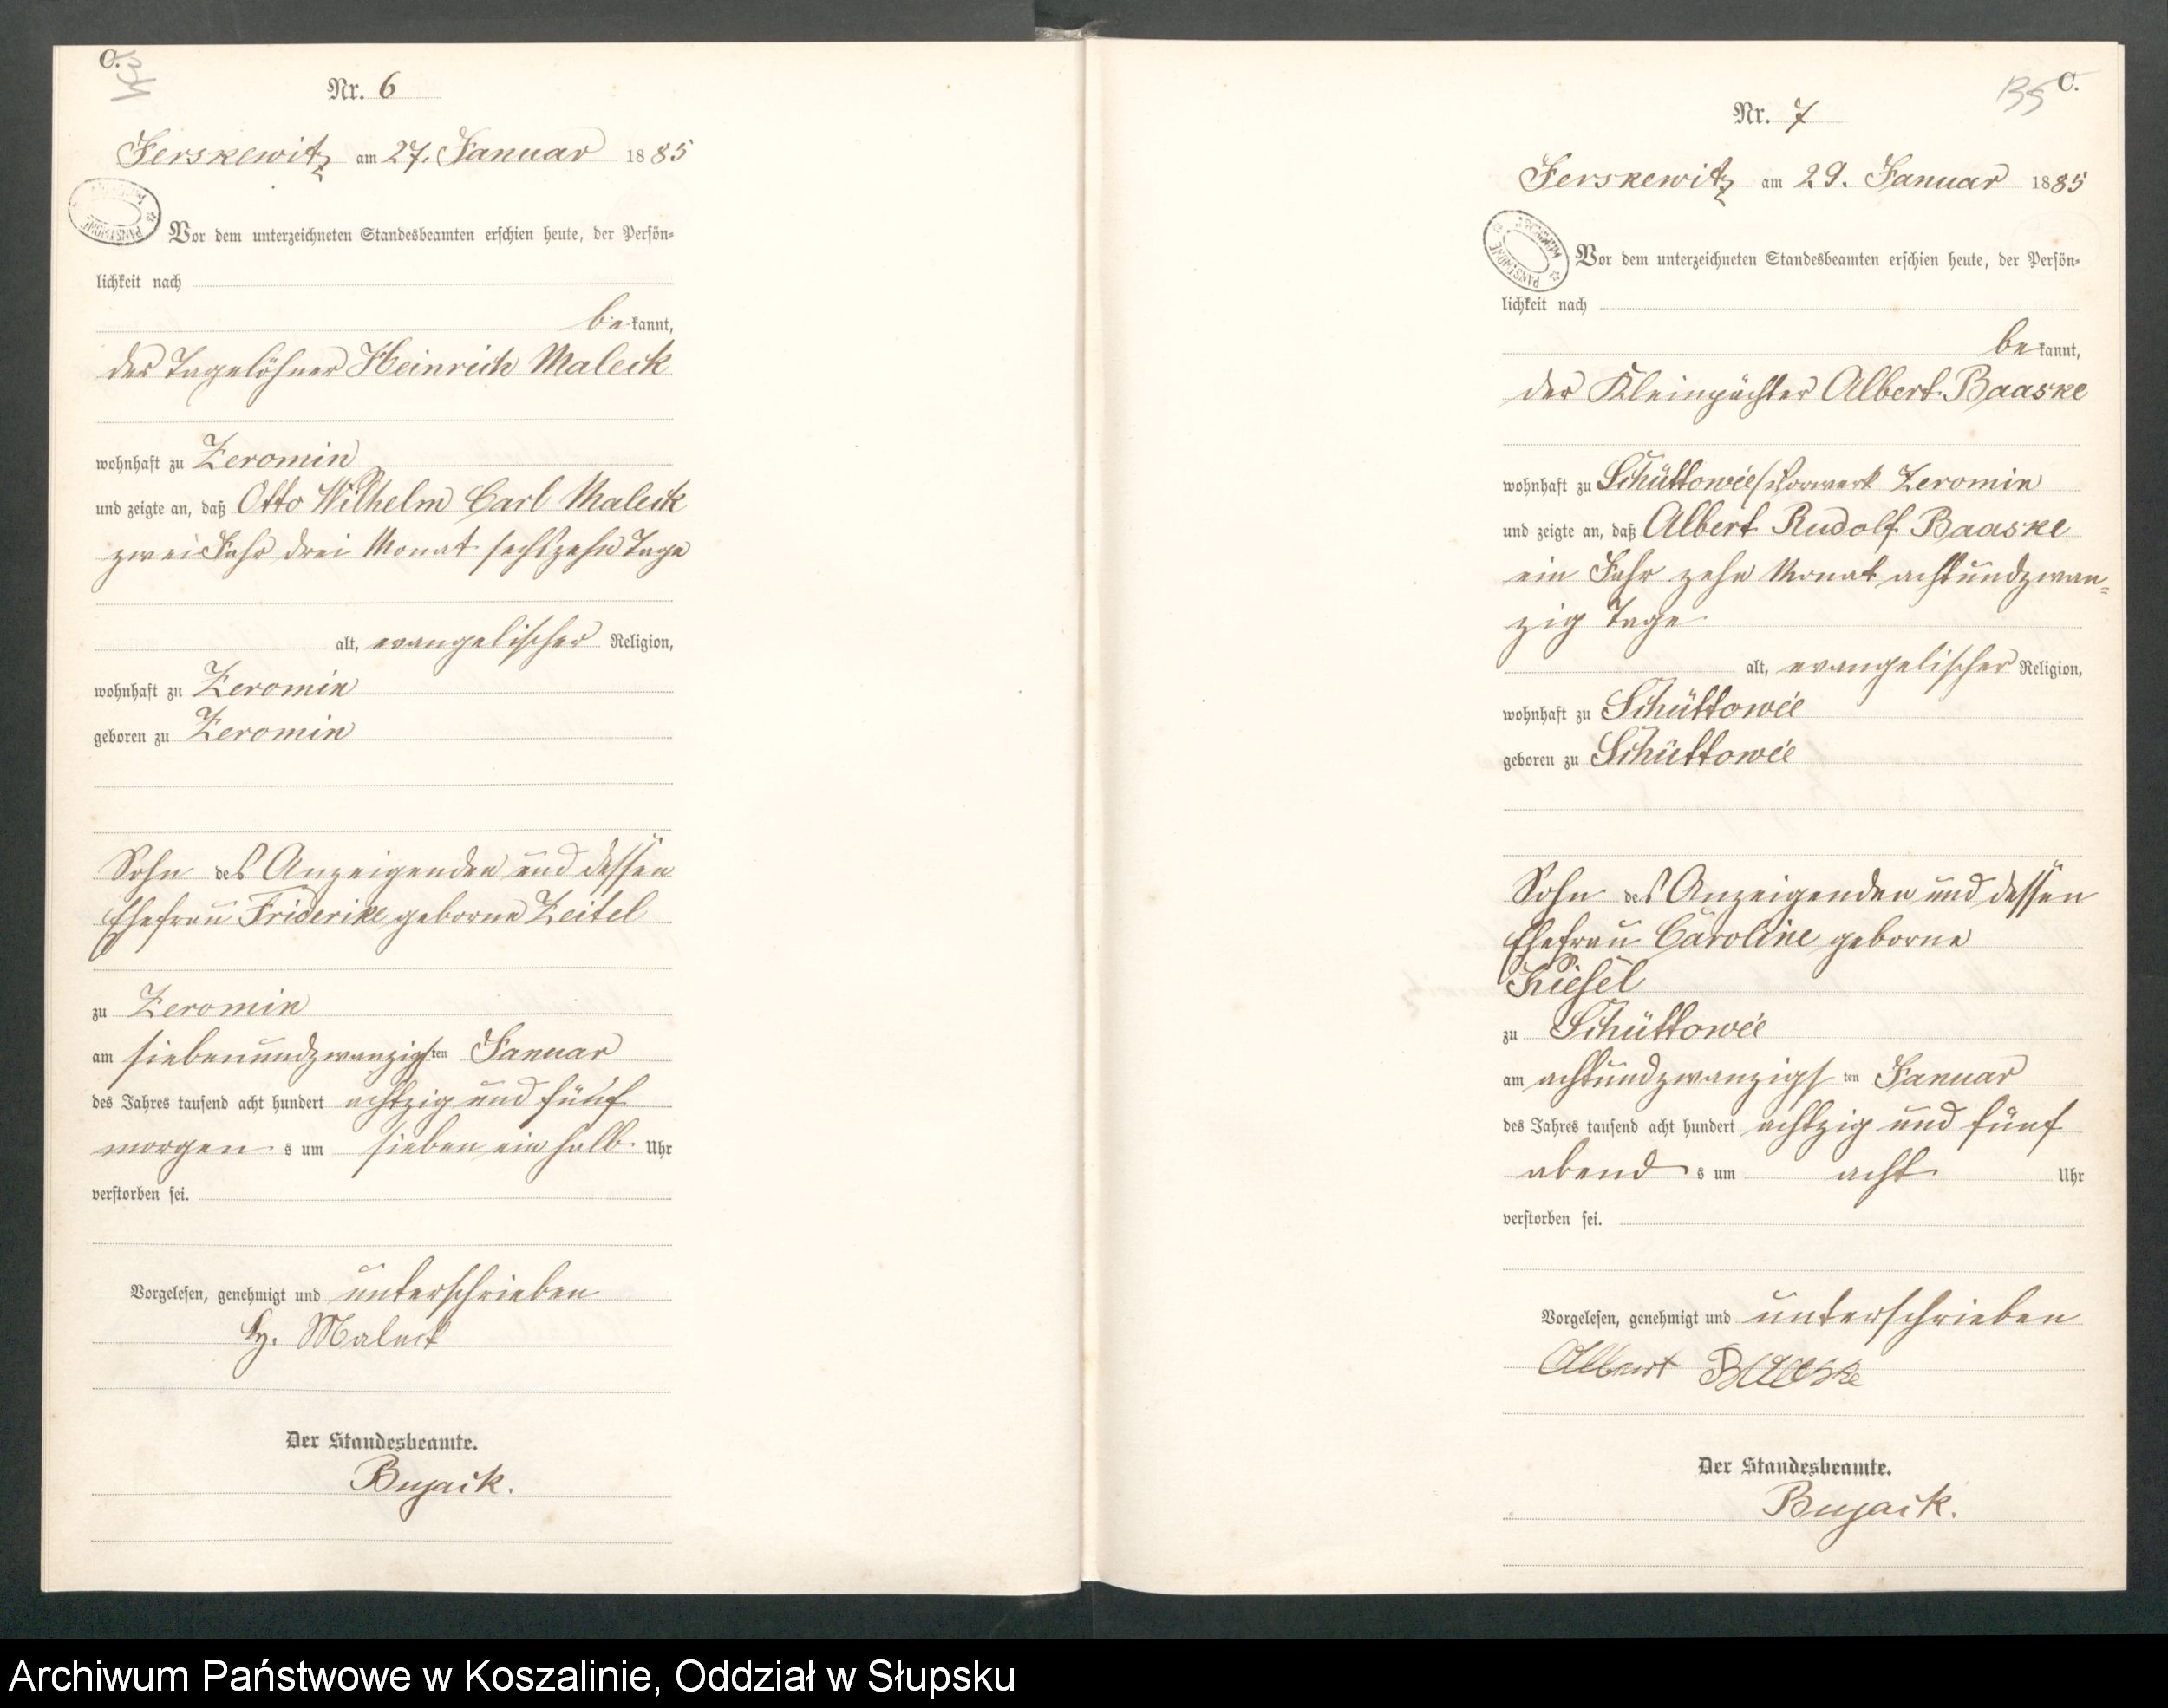 C.
Nr. 6
Jerskewitz am 27. Januar 1885
Vor dem unterzeichneten Standesbeamten erschien heute, der Persön-
lichkeit nach
bekannt,
der Tagelöhner Heinrich Maleck
wohnhaft zu Zeromin
und zeigte an, daß Otto Wilhelm Carl Maleck
zwei Jahr drei Monat sechszehn Tage
alt, evangelischer Religion,
wohnhaft zu Zeromin
geboren zu Zeromin
Sohn des Anzeigenden und dessen
Ehefrau Friderike geborne Zeitel
zu Zeromin
am siebenundzwanzigsten Januar
des Jahres tausend acht hundert achtzig und fünf
morgens um sieben ein halb Uhr
verstorben sei.
Vorgelesen, genehmigt und unterschrieben
H. Maleck
Der Standesbeamte.
Bujack.
C.
Nr. 7
Jerskewitz am 29. Januar 1885
Vor dem unterzeichneten Standesbeamten erschien heute, der Persön-
lichkeit nach
bekannt,
der Kleinpächter Albert Baaske
wohnhaft zu Schüttowée Vorwerk Zeromin
und zeigte an, daß Albert Rudolf Baaske
ein Jahr zehn Monat achtundzwan=
zig Tage
alt, evangelischer Religion,
wohnhaft zu Schüttowée
geboren zu Schüttowée
Sohn des Anzeigenden und dessen
Ehefrau Caroline geborne
Kiesel
zu Schüttowée
am achtundzwanzigsten Januar
des Jahres tausend acht hundert achtzig und fünf
abends um acht Uhr
verstorben sei.
Vorgelesen, genehmigt und unterschrieben
Albert Baaske
Der Standesbeamte.
Bujack.
Archiwum Państwowe w Koszalinie, Oddział w Słupsku